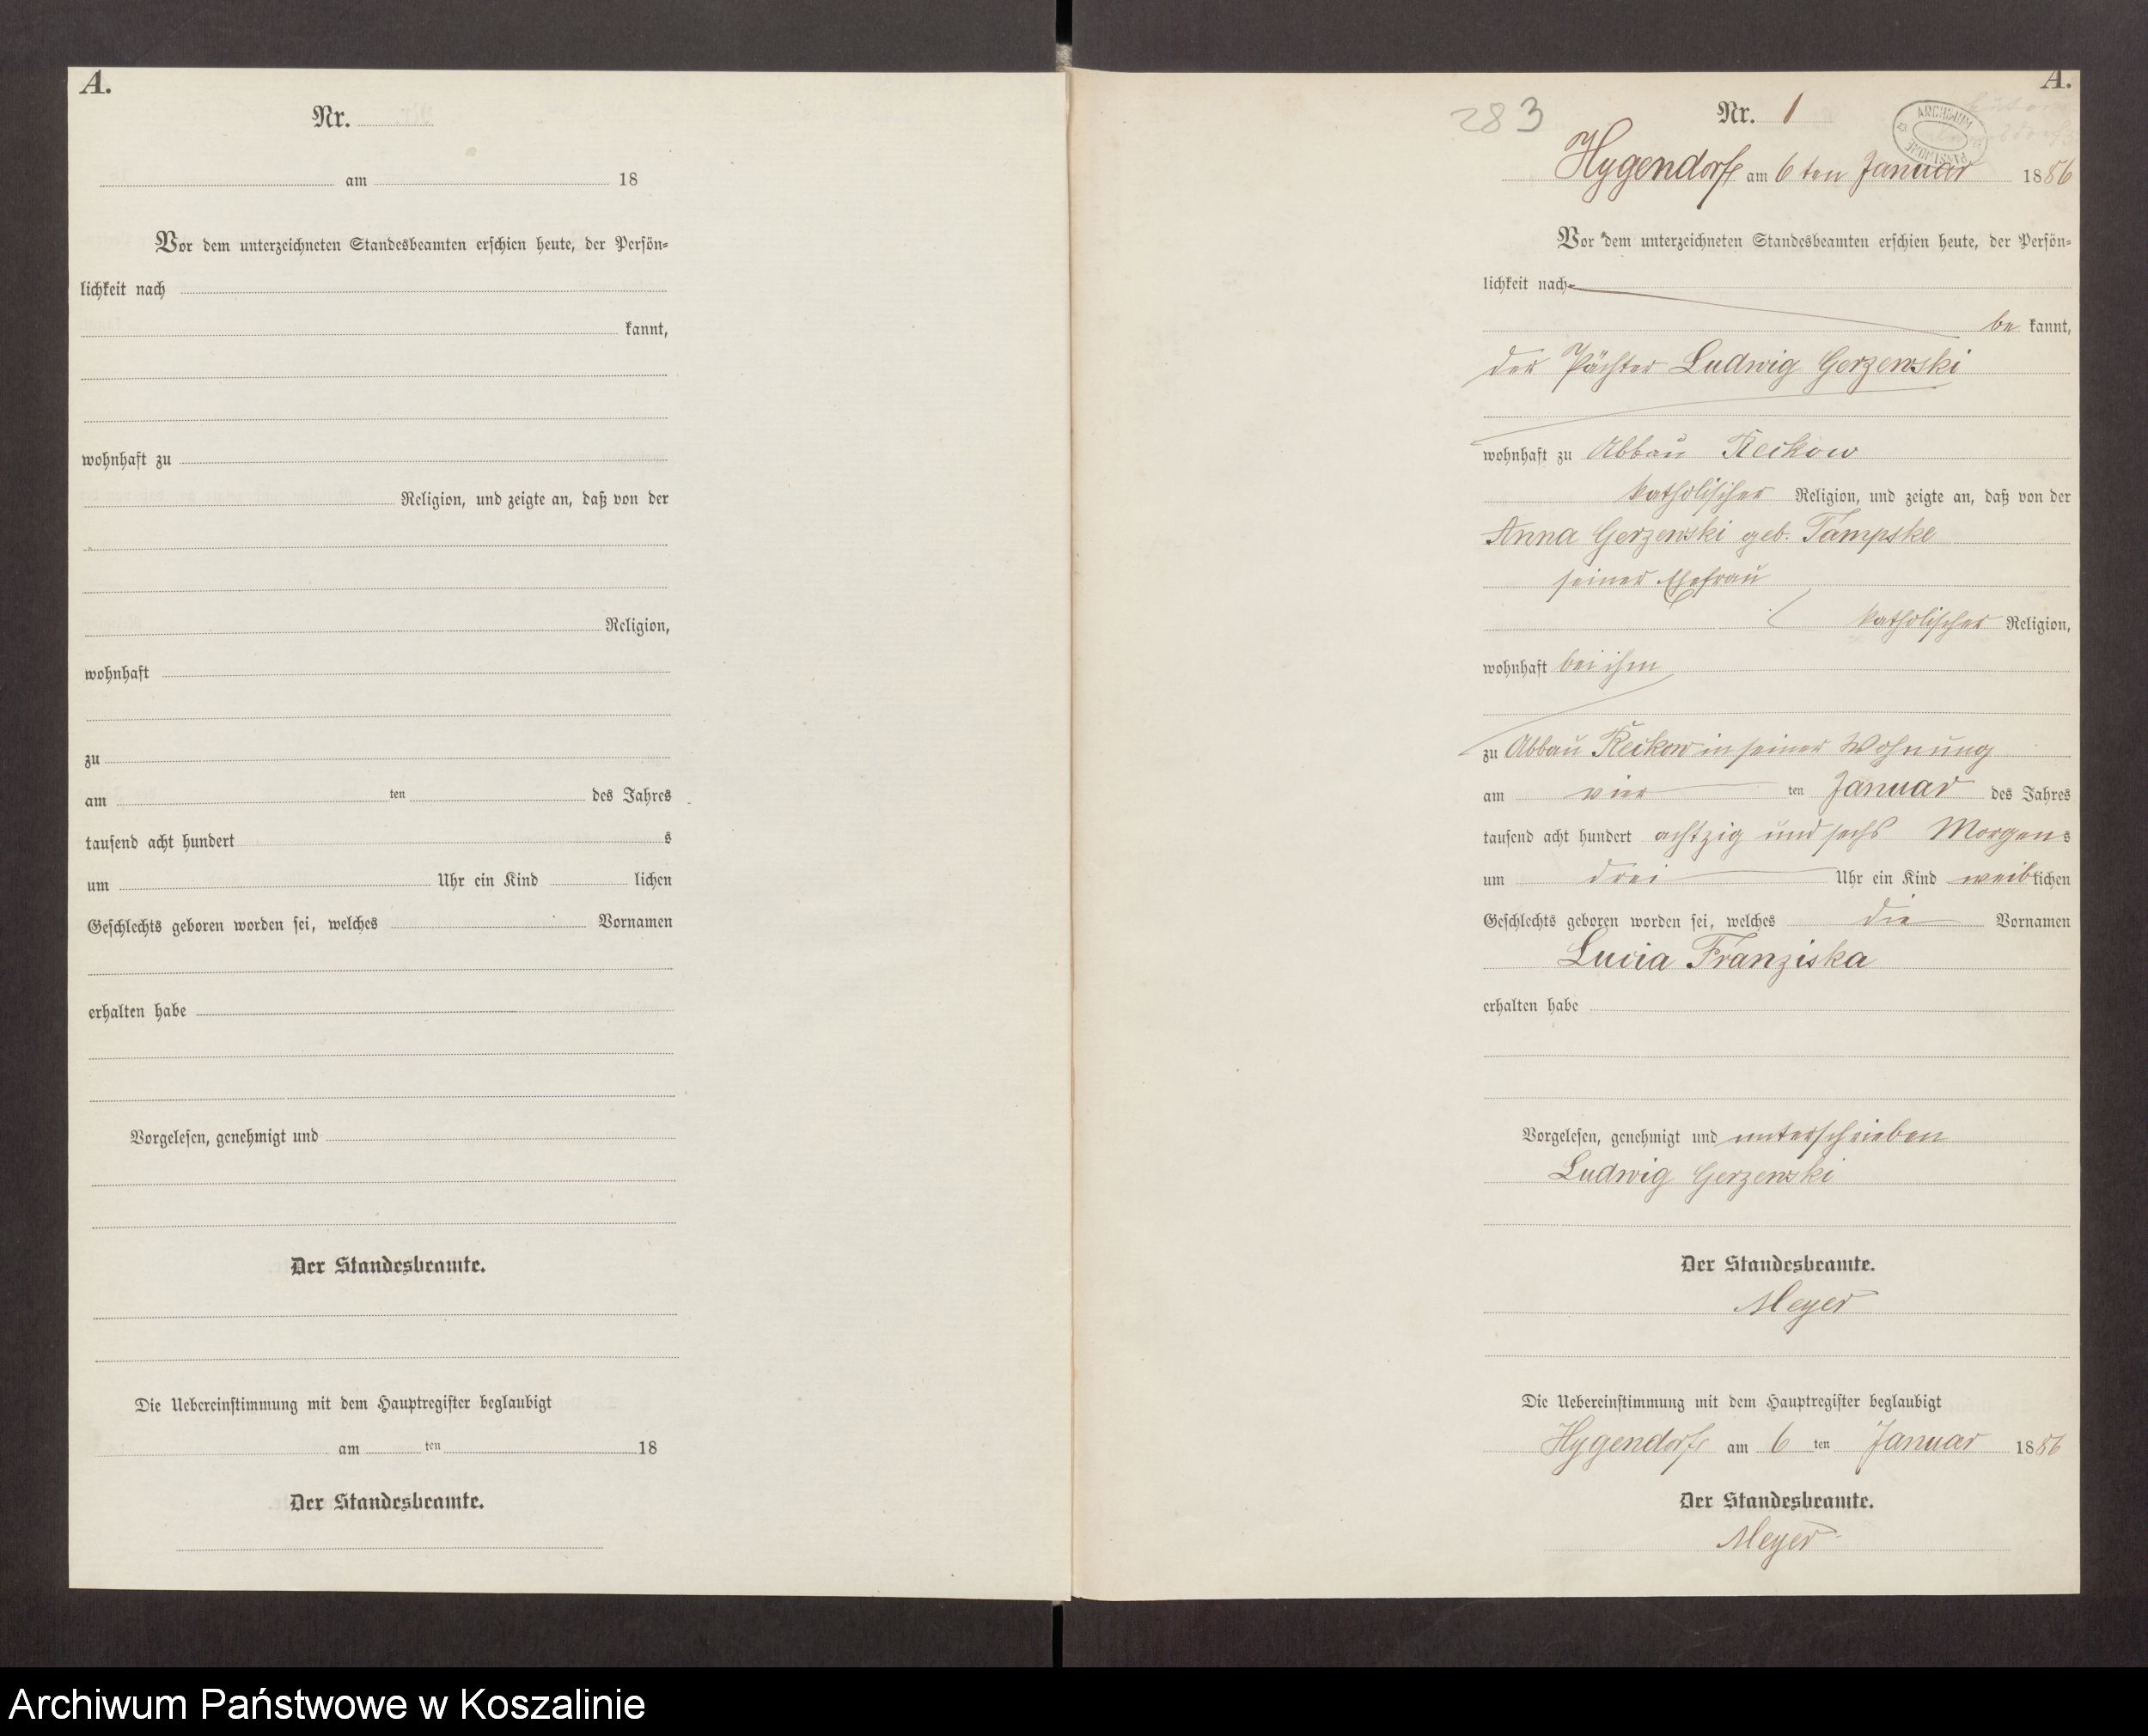 A.
Nr.
am 18
Vor dem unterzeichneten Standesbeamten erschien heute, der Persön-
lichkeit nach
kannt,
wohnhaft zu
Religion, und zeigte an, daß von der
Religion,
wohnhaft
zu
am ten des Jahres
tausend acht hundert s
um Uhr ein Kind lichen
Geschlechts geboren worden sei, welches Vornamen
erhalten habe
Vorgelesen, genehmigt und
Der Standesbeamte.
Die Uebereinstimmung mit dem Hauptregister beglaubigt
am ten 18
Der Standesbeamte.
A.
283 Nr. 1
ARCHIWUM PAŃSTWOWE
Hygendorf am 6 ten Januar 1886
Vor dem unterzeichneten Standesbeamten erschien heute, der Persön-
lichkeit nach
be kannt,
der Pächter Ludwig Gerzewski
wohnhaft zu Abbau Reckow
katholischer Religion, und zeigte an, daß von der
Anna Gerzewski geb. Tampske
seiner Ehefrau
katholischer Religion,
wohnhaft bei ihm
zu Abbau Reckow in seiner Wohnung
am vier ten Januar des Jahres
tausend acht hundert achtzig und sechs Morgens
um drei Uhr ein Kind weiblichen
Geschlechts geboren worden sei, welches die Vornamen
Lucia Franziska
erhalten habe
Vorgelesen, genehmigt und unterschrieben
Ludwig Gerzewski
Der Standesbeamte.
Meyer
Die Uebereinstimmung mit dem Hauptregister beglaubigt
Hygendorf am 6 ten Januar 1886
Der Standesbeamte.
Meyer
Archiwum Państwowe w Koszalinie